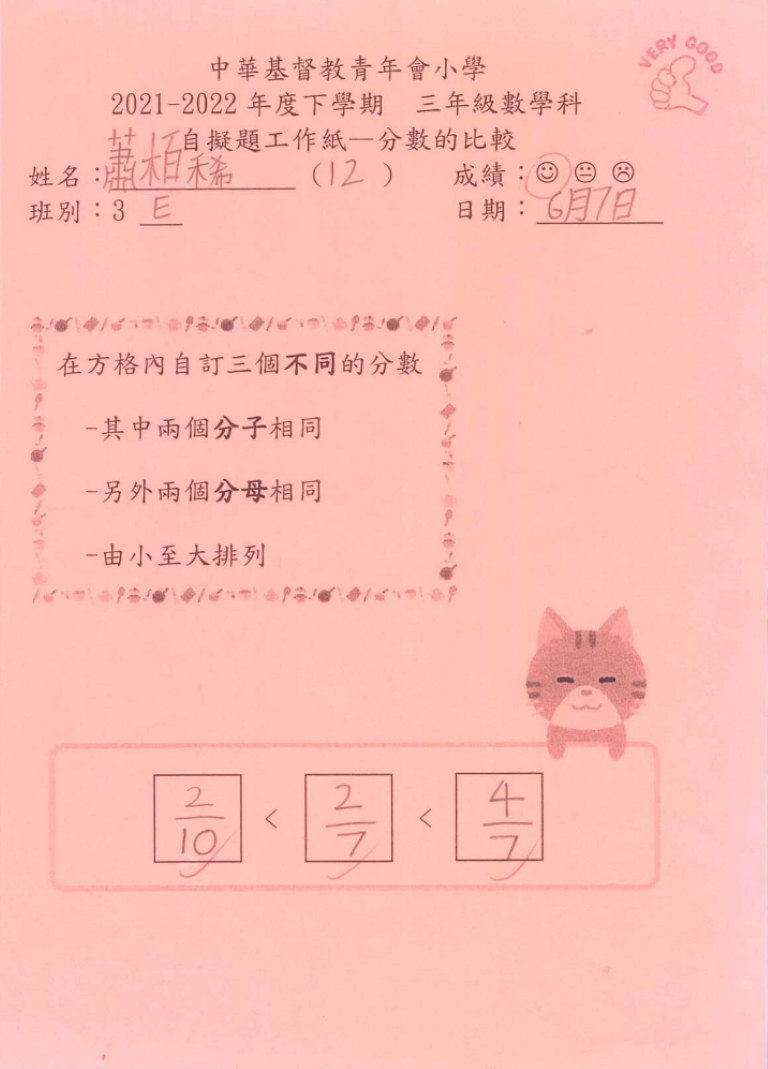 VERY GOOD
中華基督教青年會小學
2021-2022 年度下學期 三年級數學科
自擬題工作紙—分數的比較
姓名:蕭栢稀 (12) 成績:☺ 😐 ☹
班別:3 E 日期:6月7日
在方格內自訂三個不同的分數
-其中兩個分子相同
-另外兩個分母相同
-由小至大排列
2/10 < 2/7 < 4/7